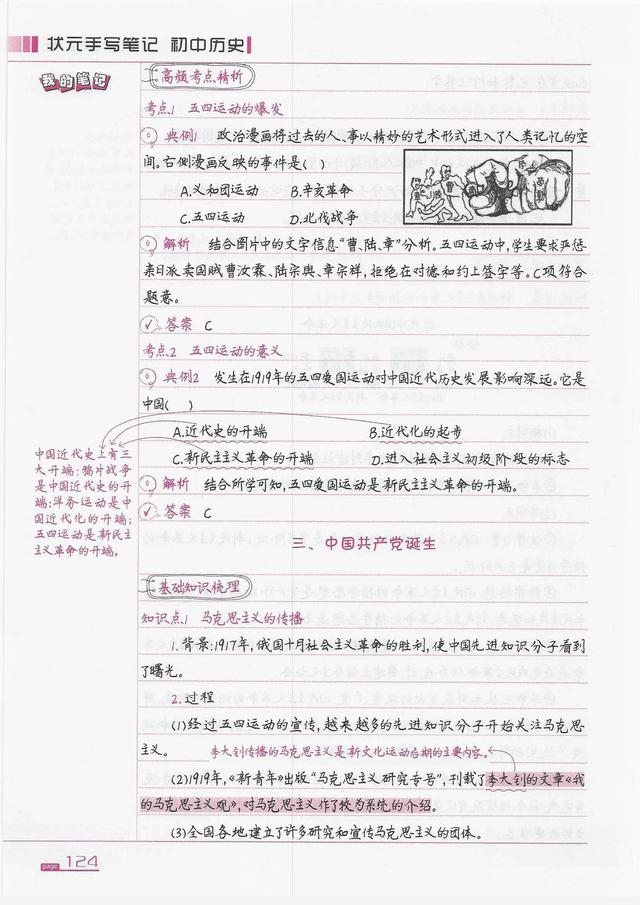 状元手写笔记 初中历史
我的笔记
高频考点精析
考点1 五四运动的爆发
典例1 政治漫画将过去的人、事以精妙的艺术形式进入了人类记忆的空
间。右侧漫画反映的事件是( )
A.义和团运动 B.辛亥革命
C.五四运动 D.北伐战争
解析 结合图片中的文字信息“曹、陆、章”分析。五四运动中,学生要求严惩
亲日派卖国贼曹汝霖、陆宗舆、章宗祥,拒绝在对德和约上签字等。C项符合
题意。
答案 C
考点2 五四运动的意义
典例2 发生在1919年的五四爱国运动对中国近代历史发展影响深远。它是
中国( )
A.近代史的开端 B.近代化的起步
C.新民主主义革命的开端 D.进入社会主义初级阶段的标志
中国近代史上有三
大开端:鸦片战争
是中国近代史的开
端;洋务运动是中
国近代化的开端;
五四运动是新民主
主义革命的开端。
解析 结合所学可知,五四爱国运动是新民主主义革命的开端。
答案 C
三、中国共产党诞生
基础知识梳理
知识点1 马克思主义的传播
1.背景:1917年,俄国十月社会主义革命的胜利,使中国先进知识分子看到
了曙光。
2.过程
(1)经过五四运动的宣传,越来越多的先进知识分子开始关注马克思
主义。 李大钊传播的马克思主义是新文化运动后期的主要内容。
(2)1919年,《新青年》出版“马克思主义研究专号”,刊载了李大钊的文章《我
的马克思主义观》,对马克思主义作了较为系统的介绍。
(3)全国各地建立了许多研究和宣传马克思主义的团体。
page 124